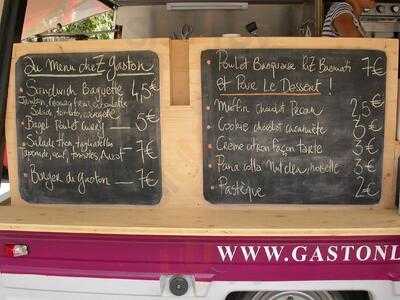 Le Menu chez Gaston
Sandwich Baguette 4,5€
Salade tomate,
Bagel Poulet curry — 5€
Salade thon, tagliatelles
tomates, — 7€
Burger du gaston — 7€
Poulet Basquaise Riz Basmati 7€
et Pour Le Dessert !
Muffin chocolat Pecan 2,5€
Cookie chocolat cacahuète 3€
Crème citron façon tarte 3€
Pana cotta Nutella, noisette 3€
Pastèque 2€
WWW.GASTONL